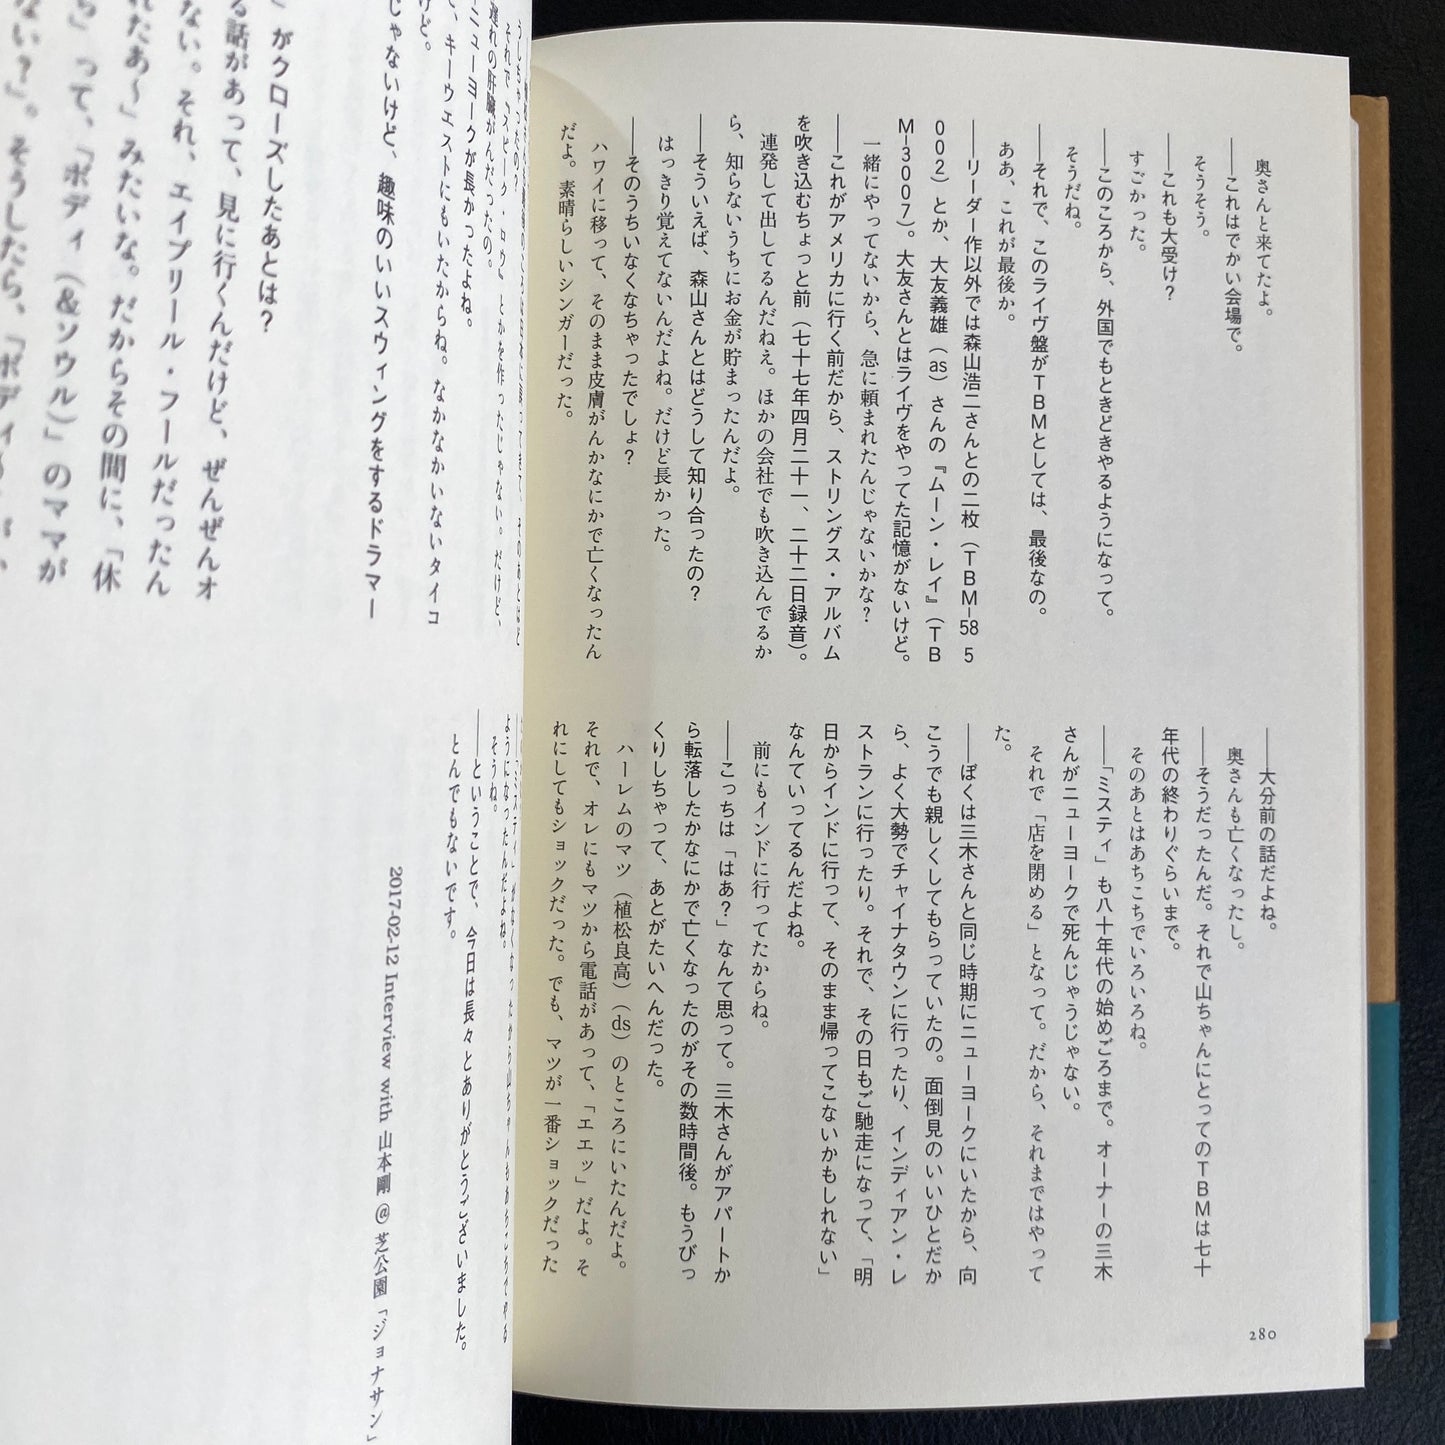 奥さんと来てたよ。
――これはでかい会場で。
そうそう。
――これも大受け？
すごかった。
――このころから、外国でもときどきやるようになって。
そうだね。
――それで、このライヴ盤がＴＢＭとしては、最後なの。
ああ、これが最後か。
――リーダー作以外では森山浩二さんとの二枚（ＴＢＭ–58 ５
００２）とか、大友義雄（as）さんの『ムーン・レイ』（ＴＢ
Ｍ–３００７）。大友さんとはライヴをやってた記憶がないけど。
一緒にやってないから、急に頼まれたんじゃないかな？
――これがアメリカに行く前だから、ストリングス・アルバム
を吹き込むちょっと前（七十七年四月二十一、二十二日録音）。
連発して出してるんだねえ。ほかの会社でも吹き込んでるか
ら、知らないうちにお金が貯まったんだよ。
――そういえば、森山さんとはどうして知り合ったの？
はっきり覚えてないんだよね。だけど長かった。
――そのうちいなくなちゃったでしょ？
ハワイに移って、そのまま皮膚がんかなにかで亡くなったん
だよ。素晴らしいシンガーだった。
――大分前の話だよね。
奥さんも亡くなったし。
――そうだったんだ。それで山ちゃんにとってのＴＢＭは七十
年代の終わりぐらいまで。
そのあとはあちこちでいろいろね。
――「ミスティ」も八十年代の始めごろまで。オーナーの三木
さんがニューヨークで死んじゃうじゃない。
それで「店を閉める」となって。だから、それまではやって
た。
――ぼくは三木さんと同じ時期にニューヨークにいたから、向
こうでも親しくしてもらっていたの。面倒見のいいひとだか
ら、よく大勢でチャイナタウンに行ったり、インディアン・レ
ストランに行ったり。それで、その日もご馳走になって、「明
日からインドに行って、そのまま帰ってこないかもしれない」
なんていってるんだよね。
前にもインドに行ってたからね。
――こっちは「はあ？」なんて思って。三木さんがアパートか
ら転落したかなにかで亡くなったのがその数時間後。もうびっ
くりしちゃって、あとがたいへんだった。
ハーレムのマツ（植松良高）（ds）のところにいたんだよ。
それで、オレにもマツから電話があって、「エエッ」だよ。そ
れにしてもショックだった。でも、マツが一番ショックだった
280
それで『スピーク・ロウ』とかを作ったじゃない。だけど、
遅れの肝臓がんだったの。
ニューヨークが長かったよね。
、キーウエストにもいたからね。なかなかいないタイコ
けど。
じゃないけど、趣味のいいスウィングをするドラマー
」がクローズしたあとは？
る話があって、見に行くんだけど、ぜんぜんオ
ない。それ、エイプリール・フールだったん
れたあ〜」みたいな。だからその間に、「休
」って、「ボディ（＆ソウル）」のママが
ない？」。そうしたら、「ボディ
ようになったんだよね。
そうね。
――ということで、今日は長々とありがとうございました。
とんでもないです。
2017-02-12 Interview with 山本剛 @ 芝公園「ジョナサン」